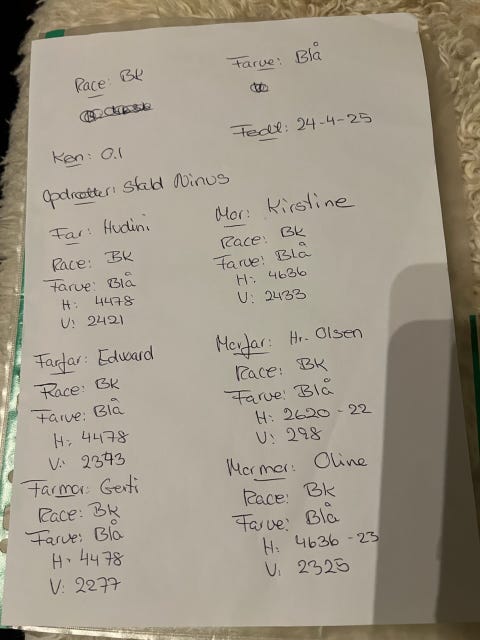 Race: BK
Farve: Blå
Født: 24-4-25
Køn: 0.1
Opdrætter: Stald Ninus
Far: Hudini
Race: BK
Farve: Blå
H: 4478
V: 2421
Mor: Kirstine
Race: BK
Farve: Blå
H: 4636
V: 2433
Farfar: Edward
Race: BK
Farve: Blå
H: 4478
V: 2393
Morfar: Hr. Olsen
Race: BK
Farve: Blå
H: 2620-22
V: 298
Farmor: Gerti
Race: BK
Farve: Blå
H: 4478
V: 2277
Mormor: Oline
Race: BK
Farve: Blå
H: 4636-23
V: 2325